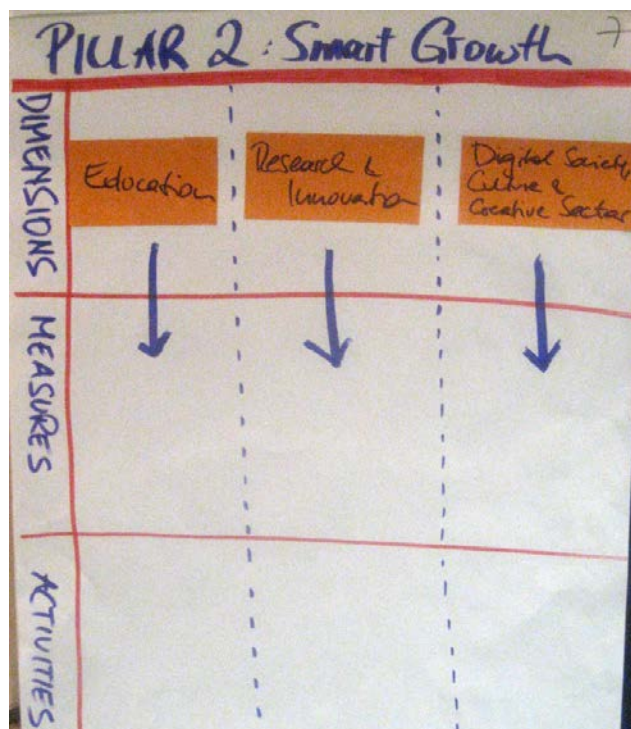 PILLAR 2: Smart Growth 7
DIMENSIONS
Education
Research &
Innovation
Digital Society,
Culture &
Creative Sector
MEASURES
ACTIVITIES